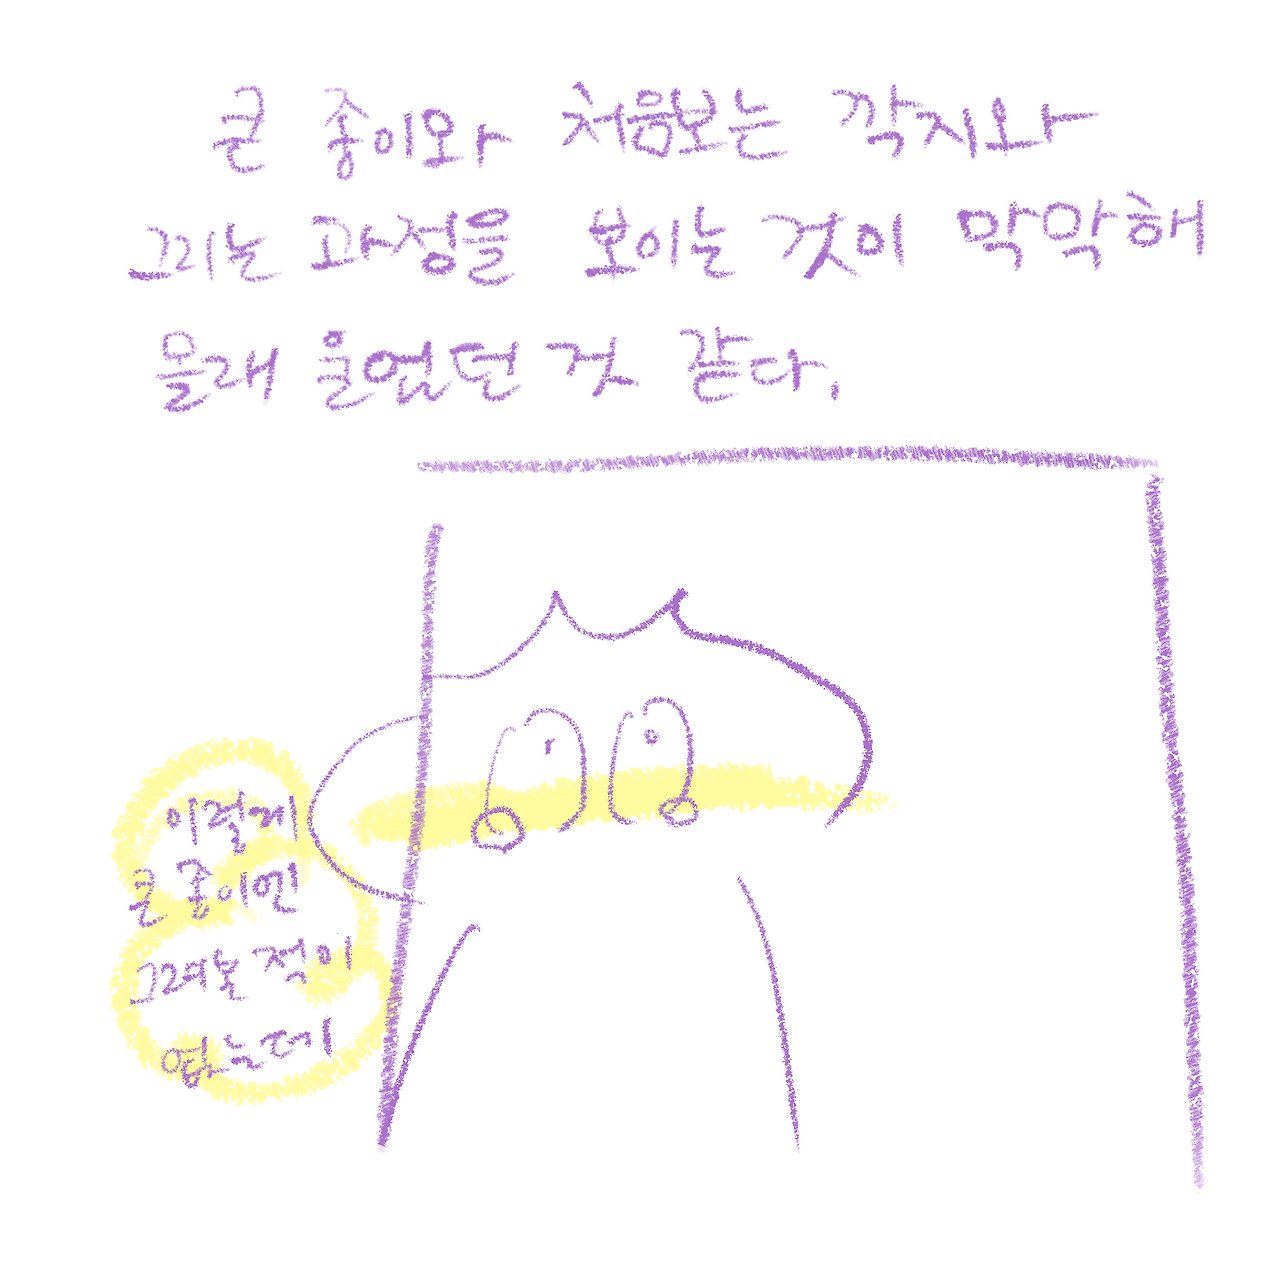 큰 종이와 처음보는 깍지와
그리는 과정을 보이는 것이 막막해
몰래 울었던 것 같다.
이렇게
큰 종이엔
그려본 적이
없는데